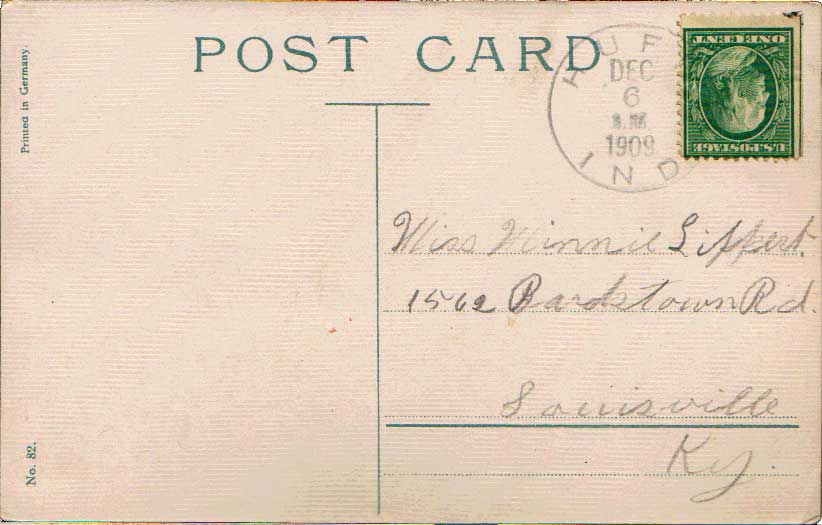 POST CARD
Printed in Germany.
No. 82.
HUF
DEC
6
1909
IND
ONE CENT
U.S. POSTAGE
Miss Minnie Lippert.
1562 Bardstown Rd.
Louisville
Ky.